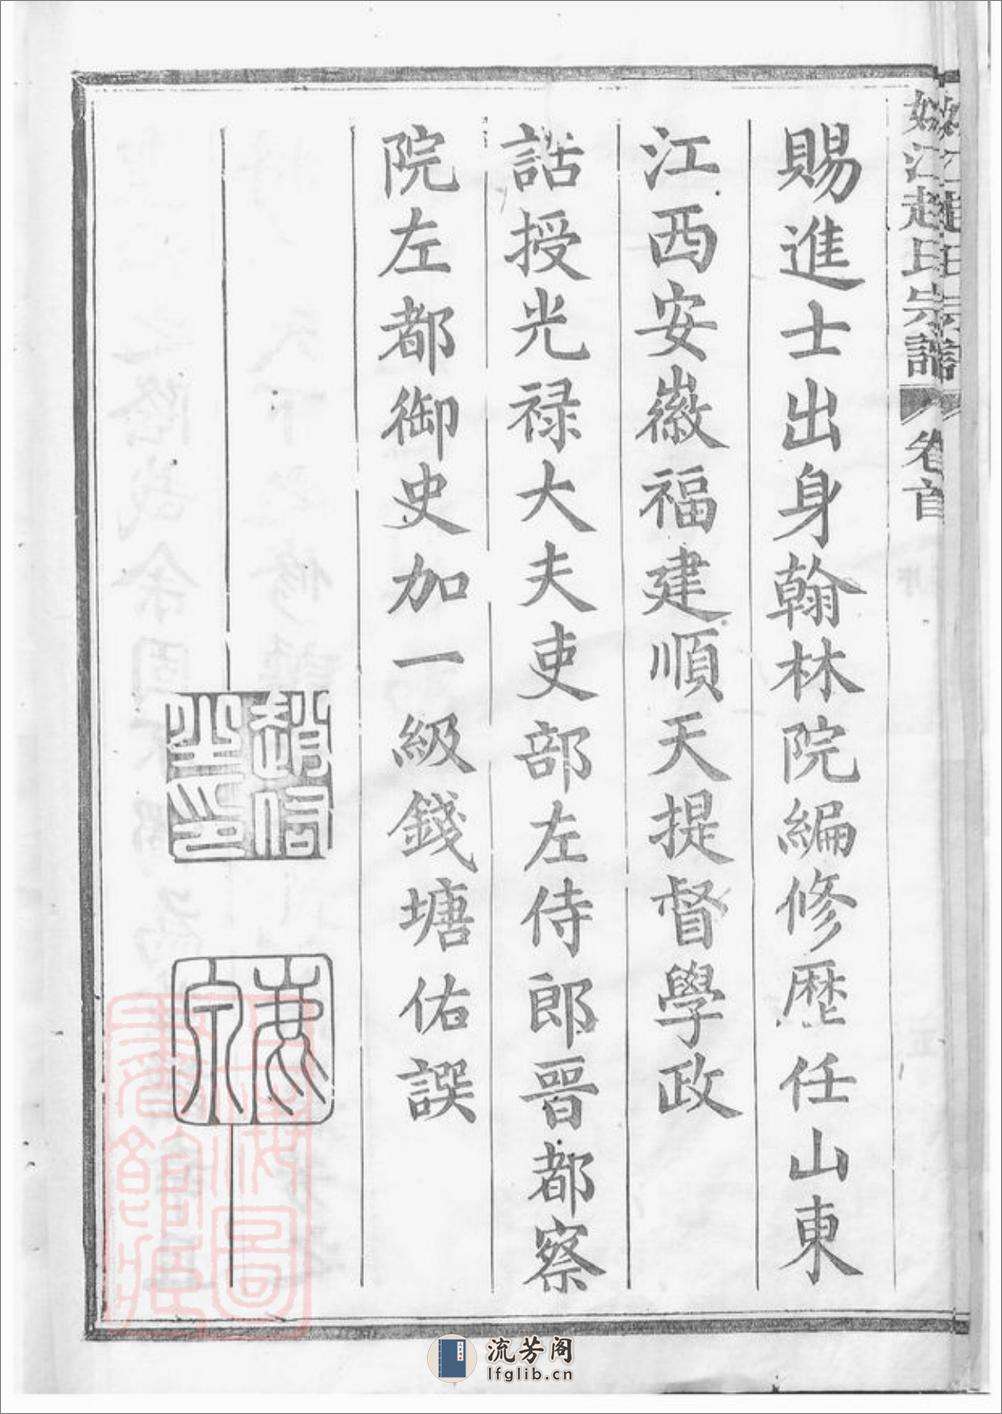 姚江趙氏宗譜 卷首
賜進士出身翰林院編修歷任山東
江西安徽福建順天提督學政
誥授光祿大夫吏部左侍郎晉都察
院左都御史加一級錢塘佑譔
趙佑之印
鹿泉
流芳阁
lfglib.cn